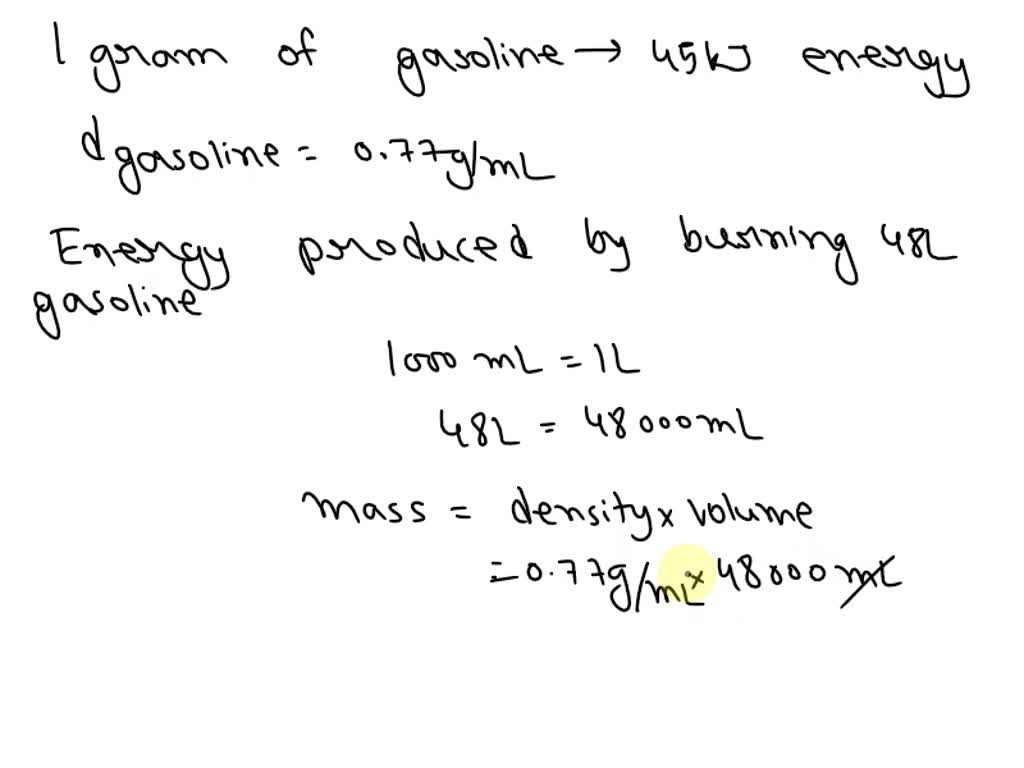 1 gram of gasoline → 45kJ energy
d gasoline = 0.77g/mL
Energy produced by burning 48L
gasoline
1000 mL = 1L
48L = 48000mL
mass = density x volume
= 0.77g/mL x 48000 mL